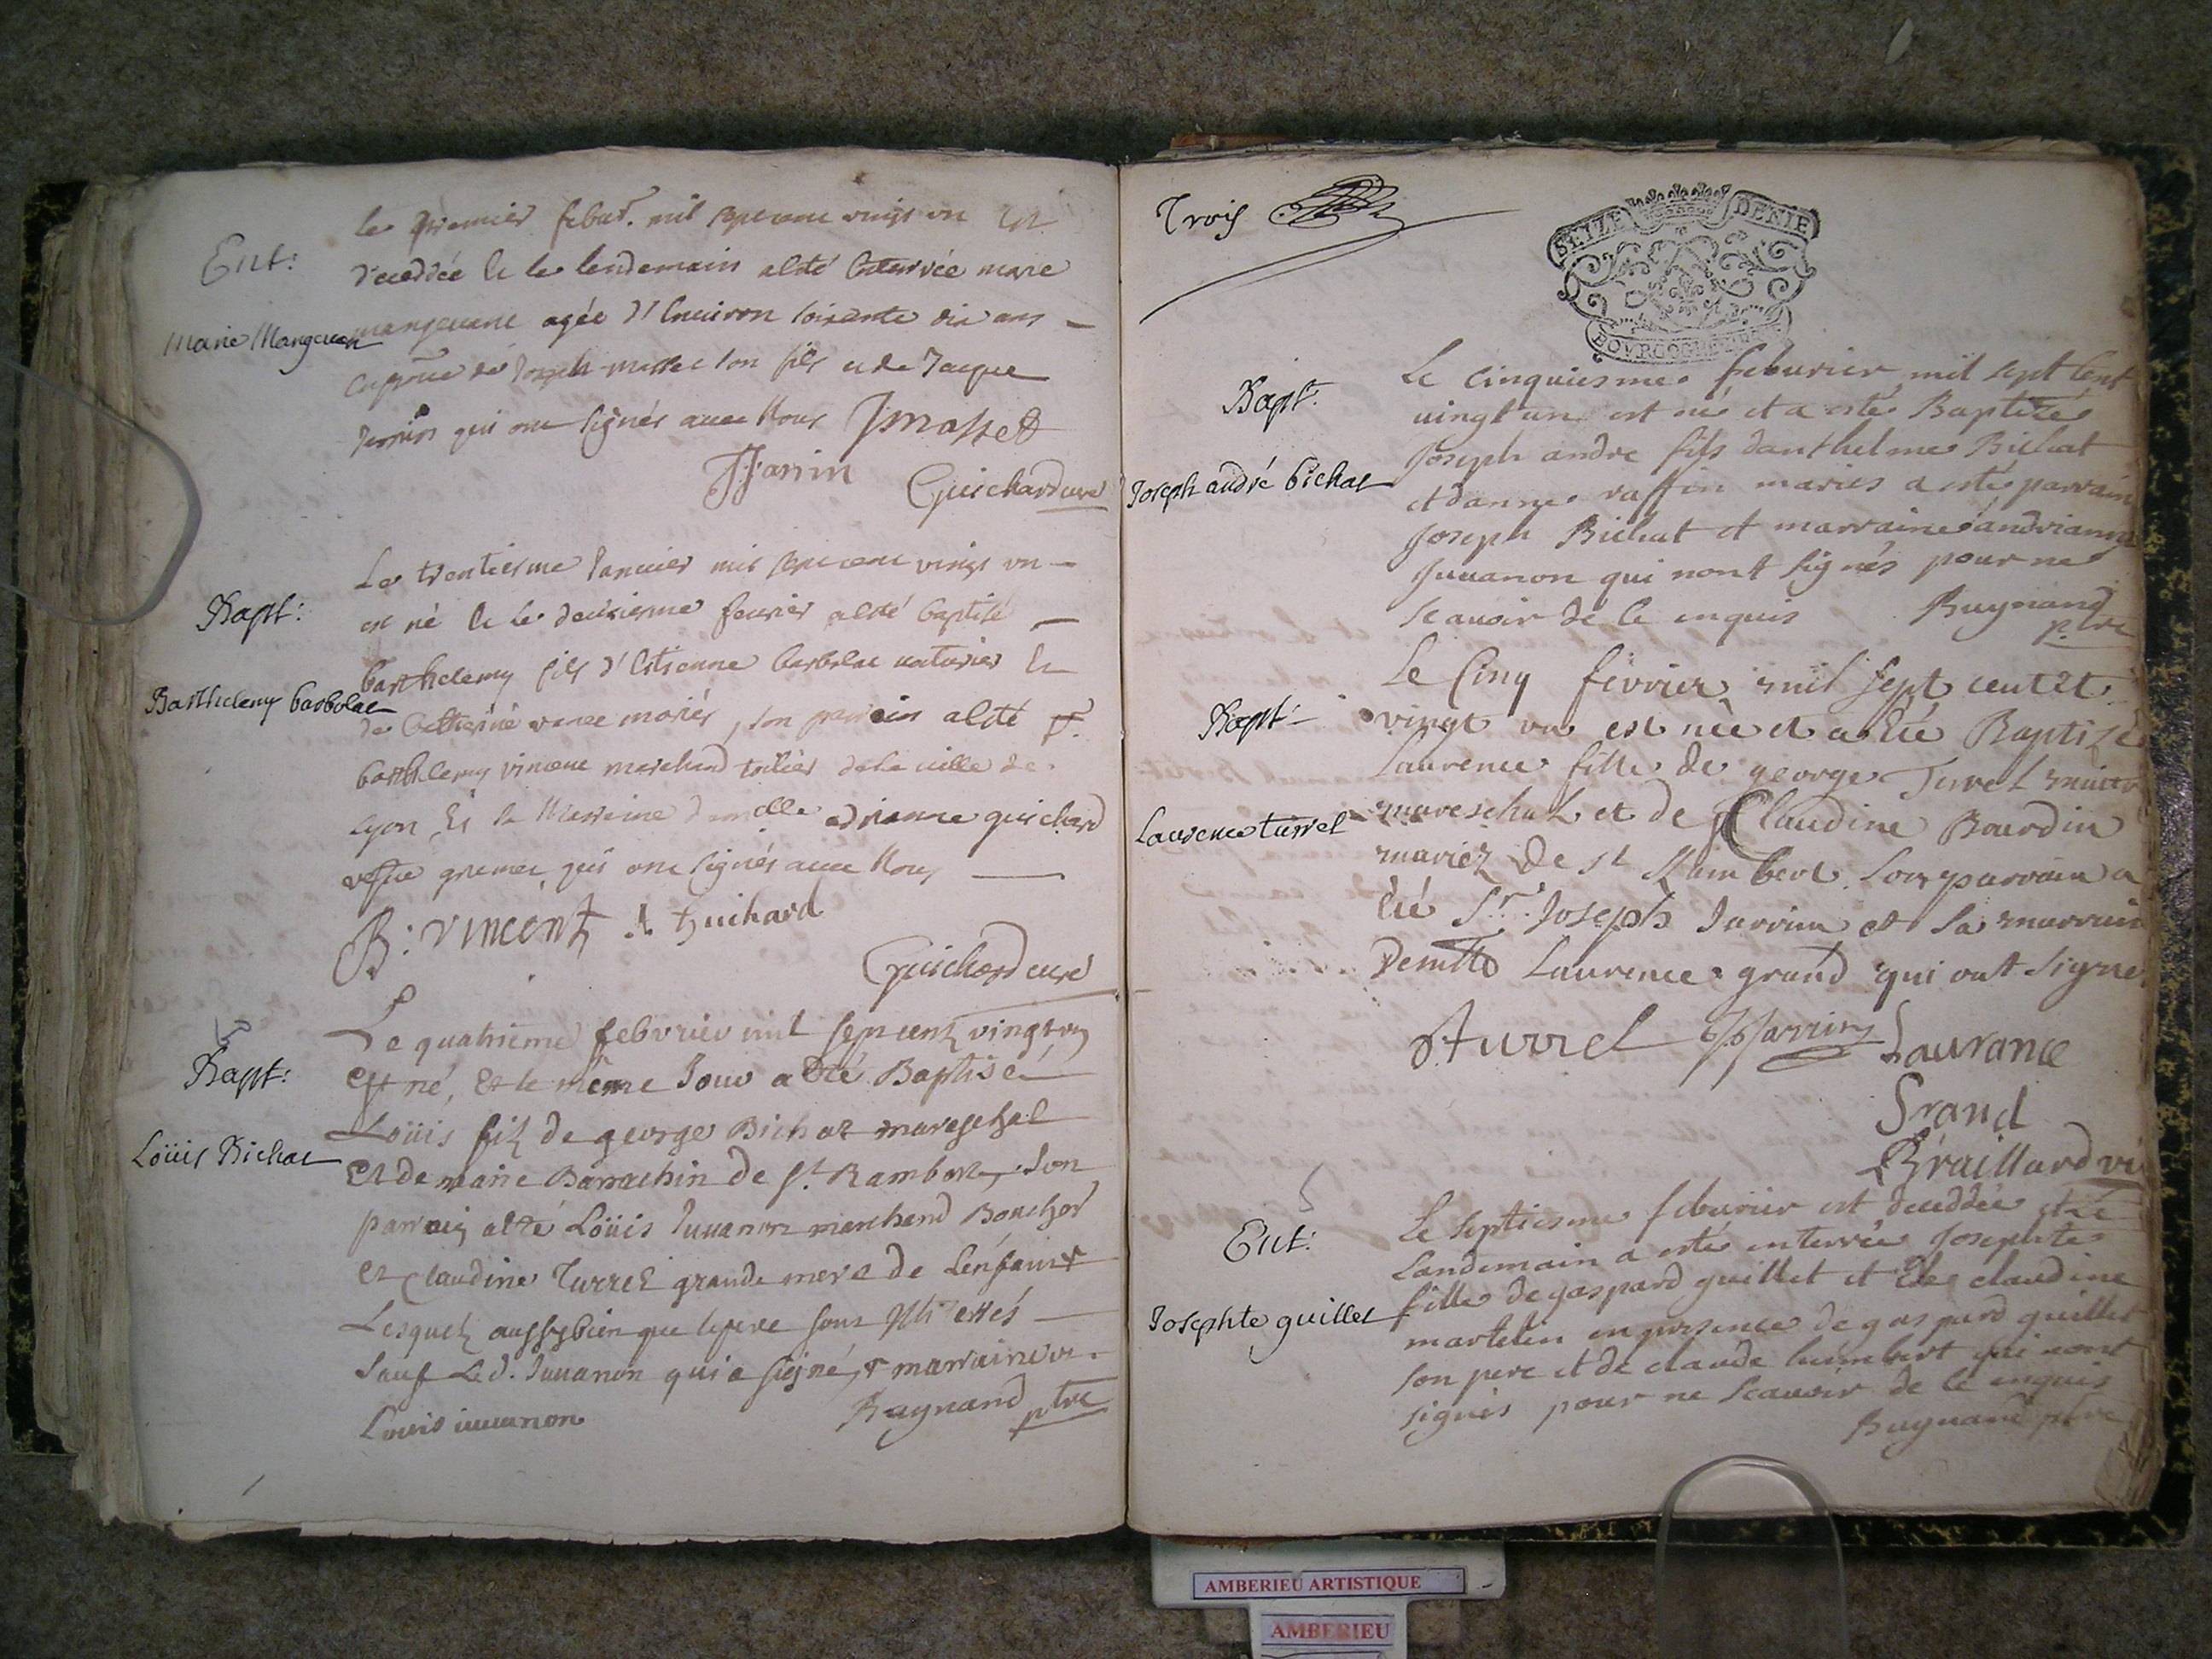 Ent:
Marie Mangeuen
le premier febur. mil sept cent vingt un Est
decedée et le lendemain a été Enterrée marie
agée d'Environ soixante dix ans
Joseph masset son fils et de Jacque
qui ont signés avec Nous JMasset
JJanin Guichard curé
Bapt:
Barthelemy barbolat
Le trentiesme Janvier mil sept cent vingt un
est né et le deuxiesme fevrier a esté baptisé
barthelemy fils d'Estienne barbolat et
de Catherine mariés, son parrain a esté Sr.
barthelemy vincent marchand de la ville de
Lyon Et la Marreine demlle adrianne guichard
qui ont signés avec Nous
B: Vincent A Guichard
Guichard curé
Bapt:
Loüis Bichat
Le quatrieme febvrier mil sept cent vingt un
est né, et le même Jour a été Baptisé
Loüis filz de george Bichat mareschal
Et de marie Barrachin de St. Rambert, son
parrain a été Loüis Juuanon marchand Boucher
et Claudine Turrel grande mere de L'enfant
Lesquelz aussy bien que le pere sont
sauf Le d. Juuanon qui a signé, &
Louis iuuanon Buynand ptre
Trois
SEIZE DENIE
BOVRGOGNE
Bapt:
Joseph andré bichat
Le cinquiesme feburier mil sept cent
uingt un est né et a esté Baptizé
Joseph andre fils danthelme Bichat
et danne raffin mariés a esté parrain
Joseph Bichat et marraine andrianne
Juuanon qui nont signés pour ne
scauoir de ce enquis Buynand
ptre
Bapt:
Laurence turrel
Le Cinq février mil sept cent et
vingt un est née et a été Baptizé
Laurence fille de george Turrel
mareschal et de Claudine Bourdin
mariez De St Rambert. Son parrain a
été Sr. Joseph Jarrin et Sa marrain
Demlle Laurence grand qui ont signe
Turrel JJarrin Laurance
Grand
Braillard vi
Ent:
Josephte guillet
Le septiesme feburier est deceddée et le
Landemain a esté enterrée Josephte
fille de gaspard guillet et de claudine
martelin en presence de gaspard guillet
son pere et de claude humbert qui nont
signés pour ne scauoir de ce enquis
Buynand ptre
AMBERIEU ARTISTIQUE
AMBERIEU